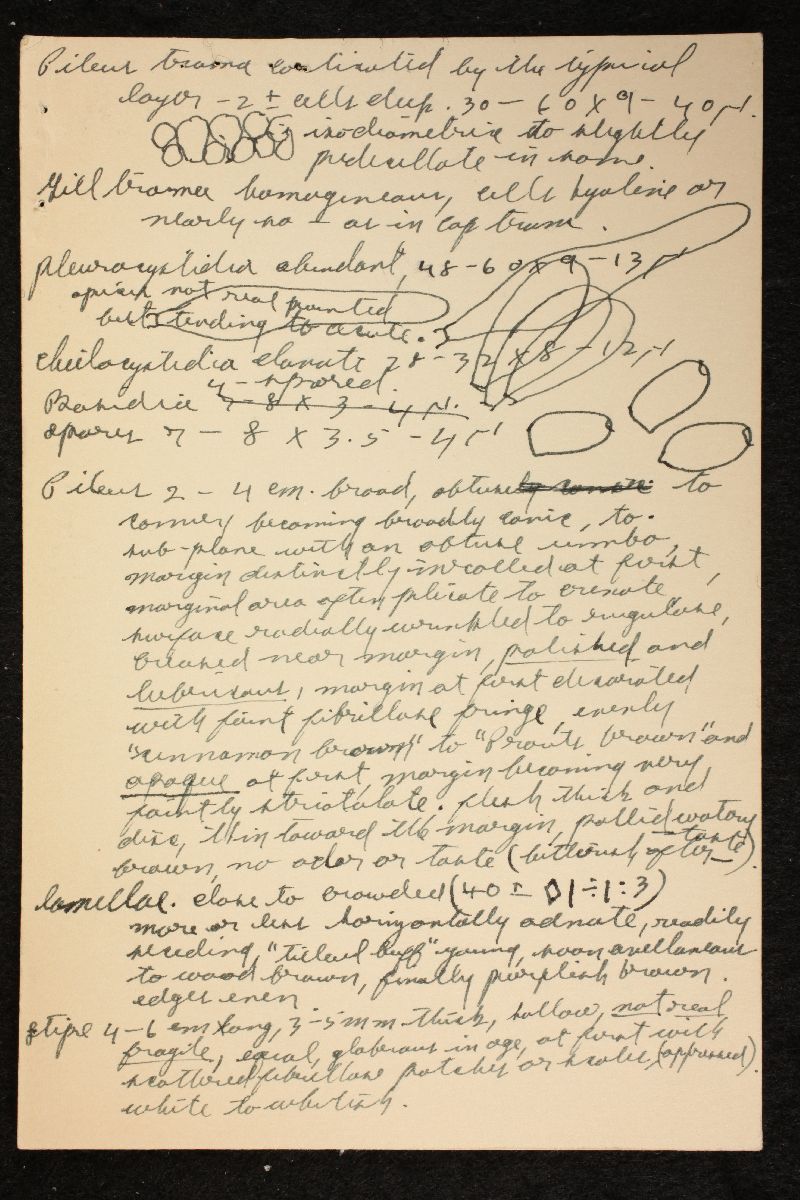 Pileus trama corticated by the typical
layer - 2 ± cells deep. 30 - 60 x 9 - 40 µ.
isodiametric to slightly
pedicellate in some.
Gill trama homogeneous, cells hyaline or
nearly so - as in cap trama.
Pleurocystidia abundant, 48-60 x 9-13 µ
apices not real pointed
but tending to acute.
Cheilocystidia clavate 28-32 x 8-12 µ
4-spored.
Basidia 7-8 x 3-4 µ.
Spores 7 - 8 x 3.5 - 4 µ
Pileus 2 - 4 cm. broad, obtusely conic to
convex becoming broadly conic, to
sub-plane with an obtuse umbo,
margin distinctly inrolled at first,
marginal area often plicate to crenate
surface radially wrinkled to rugulose,
creased near margin, polished and
lubricous, margin at first decorated
with faint fibrillose fringe, evenly
"cinnamon brown" to "Prout's brown" and
opaque at first, margin becoming very
faintly striatulate. flesh thick and
disc, thin toward the margin, pallid watery
brown, no odor or taste (bitterish after-taste).
Lamellae. close to crowded (40 ± 1÷1:3)
more or less horizontally adnate, readily
seceding, "tilleul buff" young, soon avellaneous
to wood brown, finally purplish brown.
edges even
Stipe 4-6 cm long, 3-5 mm thick, hollow, not real
fragile, equal, glabrous in age, at first with
scattered fibrillose patches or scales (appressed).
white to whitish.